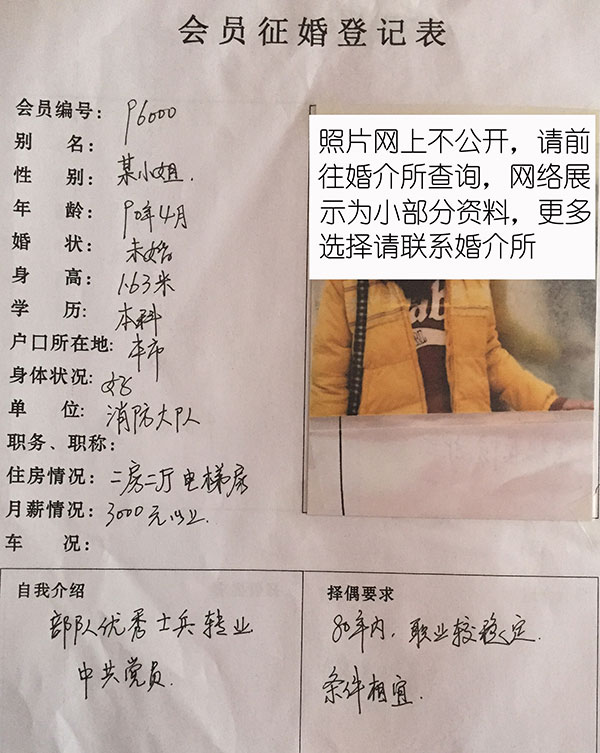 会员征婚登记表
会员编号: P6000
别 名:
性 别: 某小姐.
年 龄: 90年4月
婚 状: 未婚
身 高: 1.63米
学 历: 本科
户口所在地: 本市
身体状况: 好
单 位: 消防大队
职务、职称:
住房情况: 二房二厅 电梯房
月薪情况: 3000元以上.
车 况:
照片网上不公开,请前
往婚介所查询,网络展
示为小部分资料,更多
选择请联系婚介所
ab
自我介绍
部队优秀士兵转业
中共党员.
择偶要求
80年内, 职业较稳定.
条件相宜.